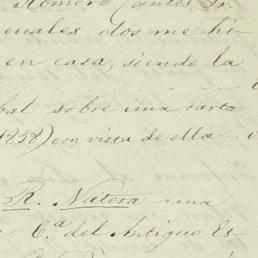 Romero (antes Sr.
cuales dos me hi-
en casa, siendo la
bal sobre una carta
1858) con vista de ella
R. Natera una
C.ª del Antiguo Es-